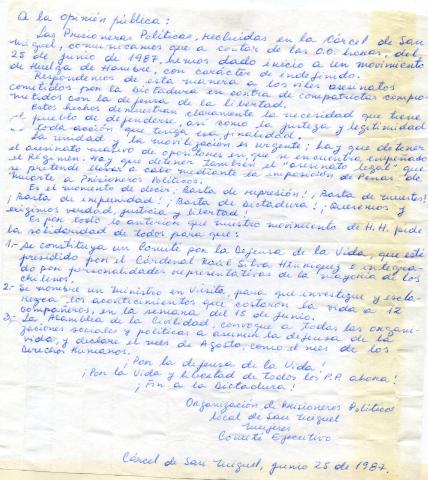 A la opinión pública:
Las Prisioneras Políticas, recluidas en la Cárcel de San
Miguel, comunicamos que a contar de las 0.0. horas, del
25 de junio de 1987, hemos dado inicio a un movimiento
de Huelga de Hambre, con carácter de indefinido.
Respondemos de esta manera a los viles asesinatos
cometidos por la Dictadura en contra de compatriotas compro-
metidos con la defensa de la libertad.
Estos hechos demuestran claramente la necesidad que tiene
el pueblo de defenderse, así como la justeza y legitimidad
toda acción que tenga esa finalidad.
La unidad y la movilización es urgente; hay que detener
el asesinato masivo de opositores en que se encuentra empeñado
el Régimen. Hay que detener también el "asesinato legal" que
se pretende llevar a cabo mediante la imposición de Penas de
Muerte a Prisioneros Políticos.
Es el momento de decir, Basta de represión! ¡Basta de muertes!
¡Basta de impunidad! ¡Basta de Dictadura! ¡Queremos y
exigimos verdad, justicia y libertad!
Es por todo lo anterior que nuestro movimiento de H.H. pide
la solidaridad de todos para que:
1.- Se constituya un Comité por la Defensa de la Vida, que esté
presidido por el Cardenal Raúl Silva Henríquez e integra-
do por personalidades representativas de la mayoría de los
chilenos.
2.- Se nombre un Ministro en Visita, para que investigue y escla-
rezca los acontecimientos que costaron la vida a 12
compañeros, en la semana del 15 de junio.
3.- La Asamblea de la Civilidad, convoque a todas las organi-
zaciones sociales y políticas a asumir la defensa de la
vida, y declare el mes de Agosto, como el mes de los
Derechos Humanos.
¡Por la defensa de la Vida!
¡Por la Vida y libertad de todos los P.P. ahora!
¡Fin a la Dictadura!
Organización de Prisioneros Políticos
local de San Miguel
Mujeres
Comité Ejecutivo
Cárcel de San Miguel, junio 25 de 1987.